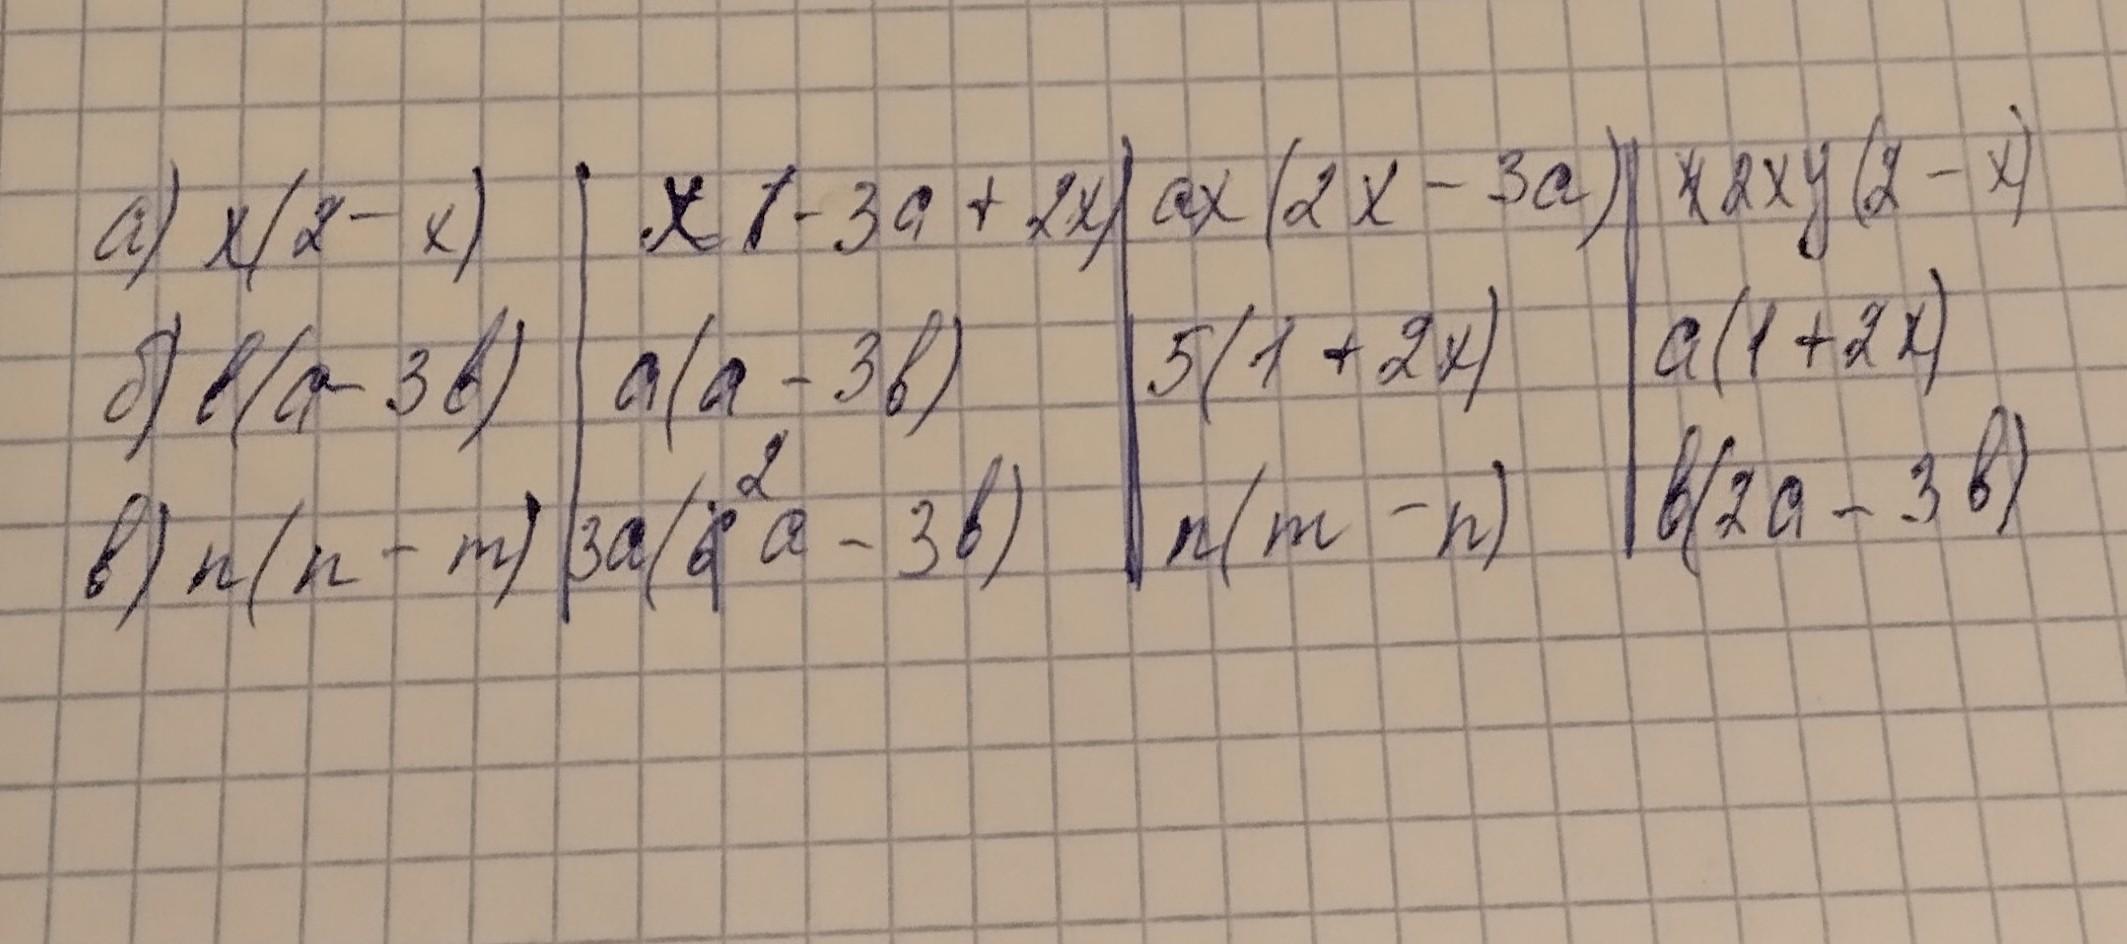 а) x(2 - x) | x 1 - 3a + 2x) | ax(2x - 3a) | 2xy(2 - x)
б) в(a - 3в) | a(a - 3в) | 5(1 + 2x) | a(1 + 2x)
в) n(n - m) | 3a(2a - 3в) | n(m - n) | в(2a - 3в)